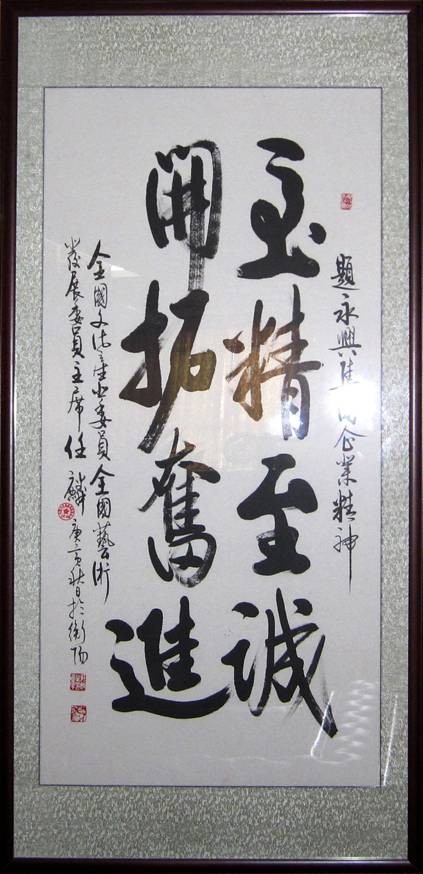 題永興企業精神
至精至誠
開拓奮進
全國文化產業委員全國藝術
發展委員主席任麟庚寅秋日於衡阳